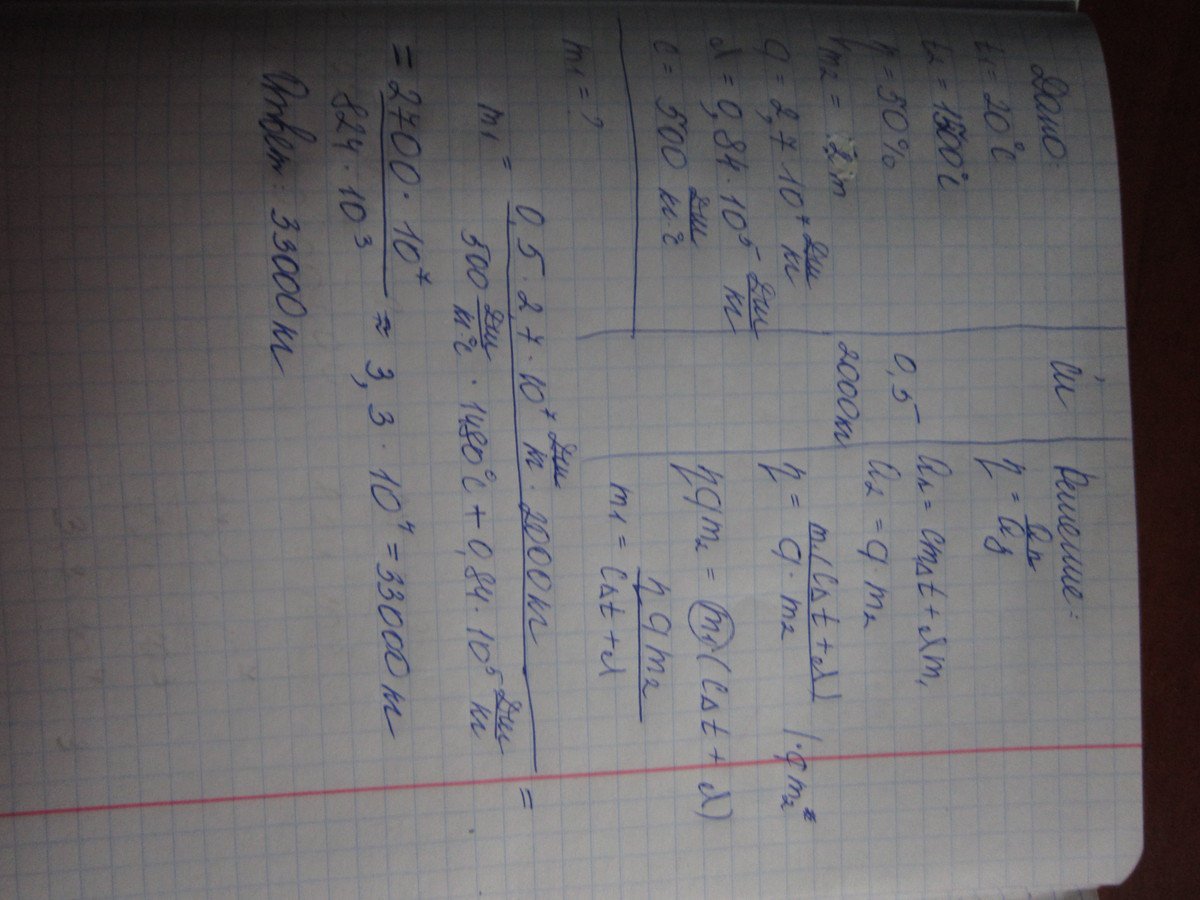 Дано:
t₁ = 20°C
t₂ = 1500°C
η = 50%
m₂ = 2 т
q = 2,7·10⁷ Дж/кг
λ = 0,84·10⁵ Дж/кг
c = 500 Дж/кг·°C
m₁ = ?
Си
0,5
2000 кг
Решение:
η = Qп/Qз
Qп = cmΔt + λm₁
Q₂ = q·m₂
η = m₁(cΔt + λ)/q·m₂ |·qm₂
ηqm₂ = m₁(cΔt + λ)
m₁ = ηqm₂/cΔt + λ
m₁ = 0,5·2,7·10⁷ Дж/кг·2000 кг/500 Дж/кг·°C·1480°C + 0,84·10⁵ Дж/кг =
= 2700·10⁷/824·10³ ≈ 3,3·10⁴ = 33000 кг
Ответ: 33000 кг